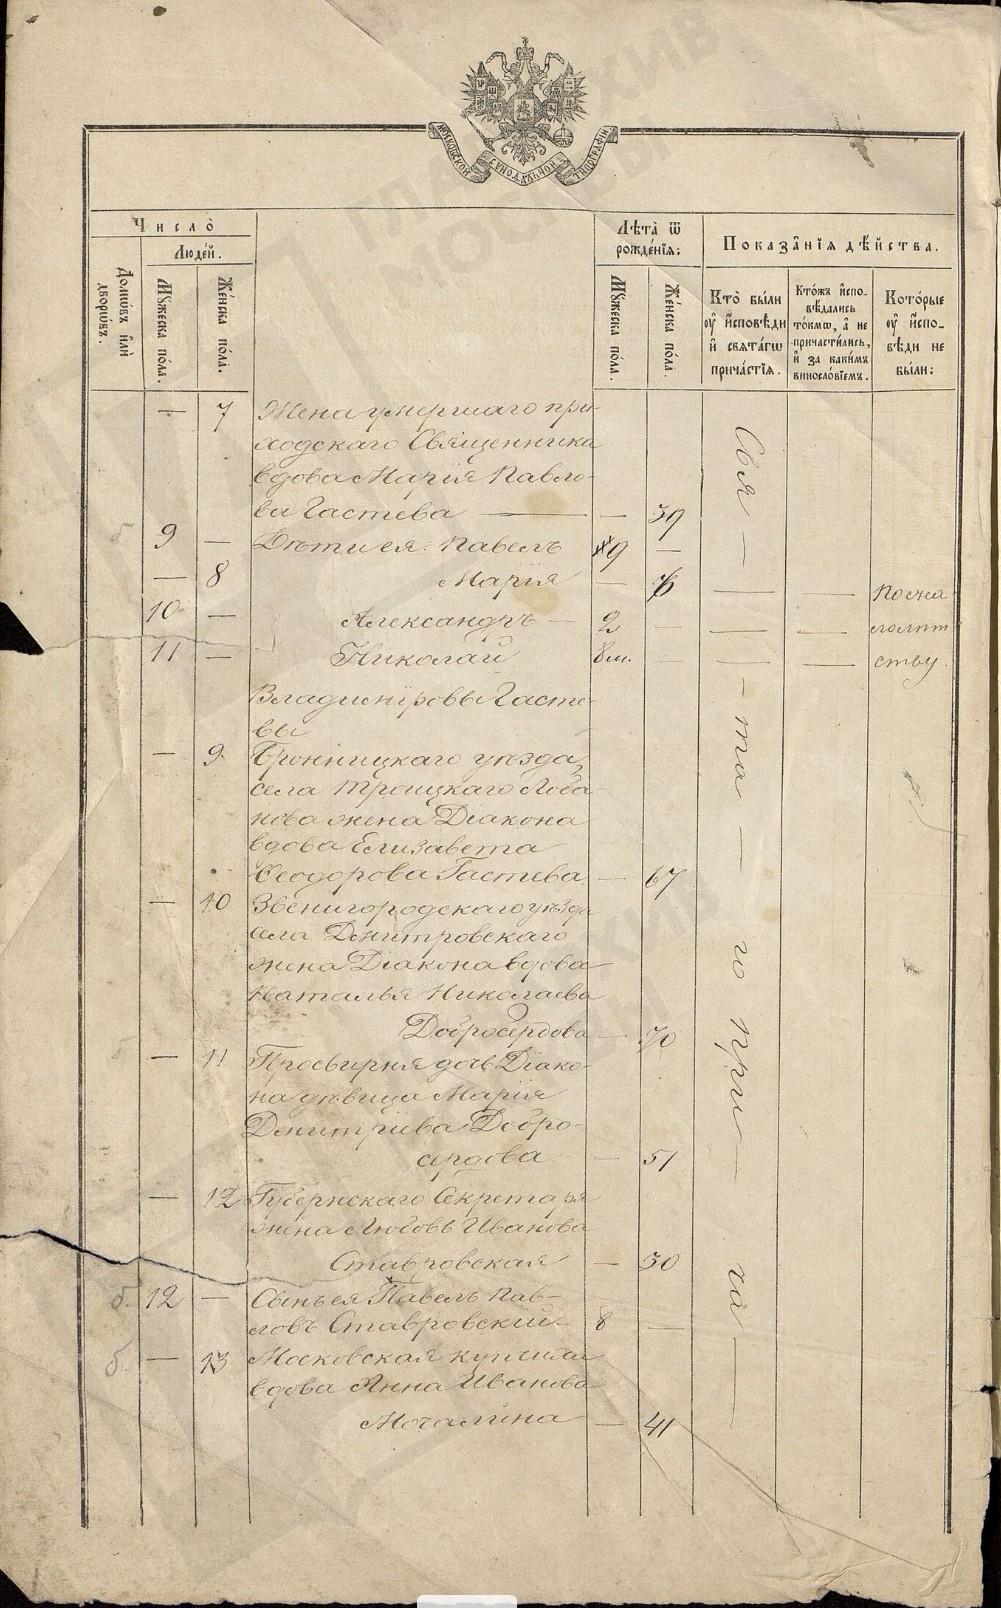 МОСКОВСКОЙ СѴНОДАЛЬНОЙ ТИПОГРАФІИ
Число̀
Люде́й.
Домѡ́въ и҆лѝ дворѡ́въ.
Мꙋ́жеска по́ла.
Же́нска по́ла.
Лѣ́та ѿ рожде́нїѧ:
Мꙋ́жеска по́ла.
Же́нска по́ла.
Показа̑нїѧ дѣ́йства.
Кто̀ бы́ли
ᲂу҆ и҆сповѣ́ди
и҆ свѧта́гѡ
прича́стїѧ.
Кто́жъ и҆спо-
вѣ́дались
то́кмѡ, а҆ не
причасти́лись,
и҆ за каки́мъ
винослов́їемъ.
Кото́рые
ᲂу҆ и҆спо-
вѣ́ди не
бы́ли:
— 7 Жена умершаго при-
ходскаго Священника
вдова Марія Павло-
ва Гастева — — 39
9 — Дѣти ея: Павелъ 9 —
— 8 Марія — 6 — — по мла
10 — Александръ — 2 — — — долѣт
11 — Николай 8 м. — — — ству.
Владиміровы Гасте-
вы
— 9 Бронницкаго уѣзда,
села Троицкаго Лоба
нова жена Діакона
вдова Елизавета
Ѳеодорова Гастева — 67
— 10 Звенигородскаго уѣзда
села Дмитровскаго
жена Діакона вдова
Наталья Николаева
Добросердова — 70
— 11 Просвирня дочь Діако-
на дѣвица Марія
Дмитріева Добро-
сердова — 51
— 12 Губернскаго Секретаря
жена Любовь Иванова
Ставровская — 30
б. 12 — Сынъ ея Павелъ Пав-
ловъ Ставровскій 8 —
б. — 13 Московская купчиха
вдова Анна Иванова
Мочалина — 41
Свя — та — го при — ча —